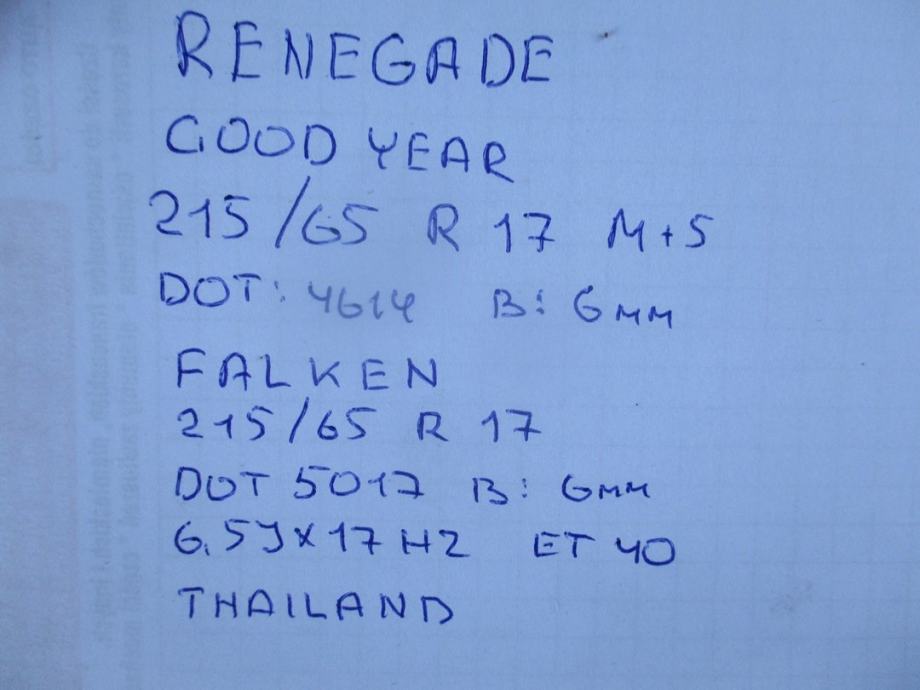 RENEGADE
GOOD YEAR
215/65 R 17 M+S
DOT: 4614 B: 6mm
FALKEN
215/65 R 17
DOT 5017 B: 6mm
6.5J×17 H2 ET 40
THAILAND